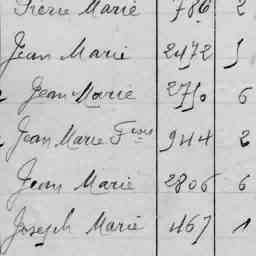 Pierre Marie 786 2
Jean Marie 2472 5
Jean Marie 2750 6
Jean Marie Fçois 944 2
Jean Marie 2806 6
Joseph Marie 467 1